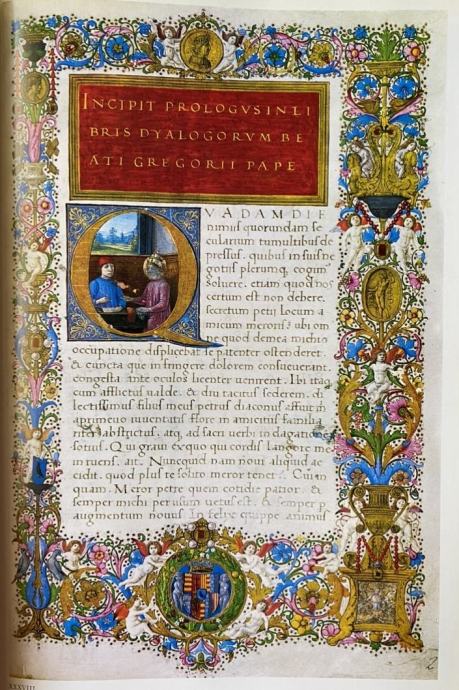 INCIPIT PROLOGVS IN LI
BRIS DYALOGORVM BE
ATI GREGORII PAPE
QVADAM DIE
nimiis quorundam se
cularium tumultibus de
pressus. quibus in suis ne
gotiis plerumq; cogim
soluere. etiam quod nos
certum est non debere.
secretum petii locum a
micum meroris? ubi om
quod de mea michi
occupatione displicebat se patenter ostenderet.
& cuncta que infringere dolorem consueuerant.
congesta ante oculos licenter uenirent. Ibi itaq
cum afflictus ualde. & diu tacitus sederem. di
lectissimus filius meus petrus diaconus affuit m
a primeuo iuuentutis flore in amicitiis familia
riter abstrictus. atq; ad sacri uerbi indagationē
sotius. Qui graui exquoqui cordis langore me
intuens. ait. Nunquid nam noui aliquid ac
cidit. quod plus te solito meror tenet? Cui in
quam. Meror petre quem cotidie patior. &
semper michi per usum uetus est. & semper p
augmentum nouus. In felix quippe animus
XXXVIII